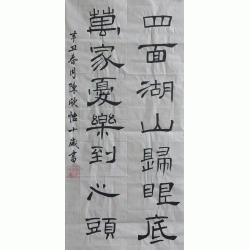 四面湖山歸眼底
萬家憂樂到心頭
辛丑春月陳欣怡十歲書